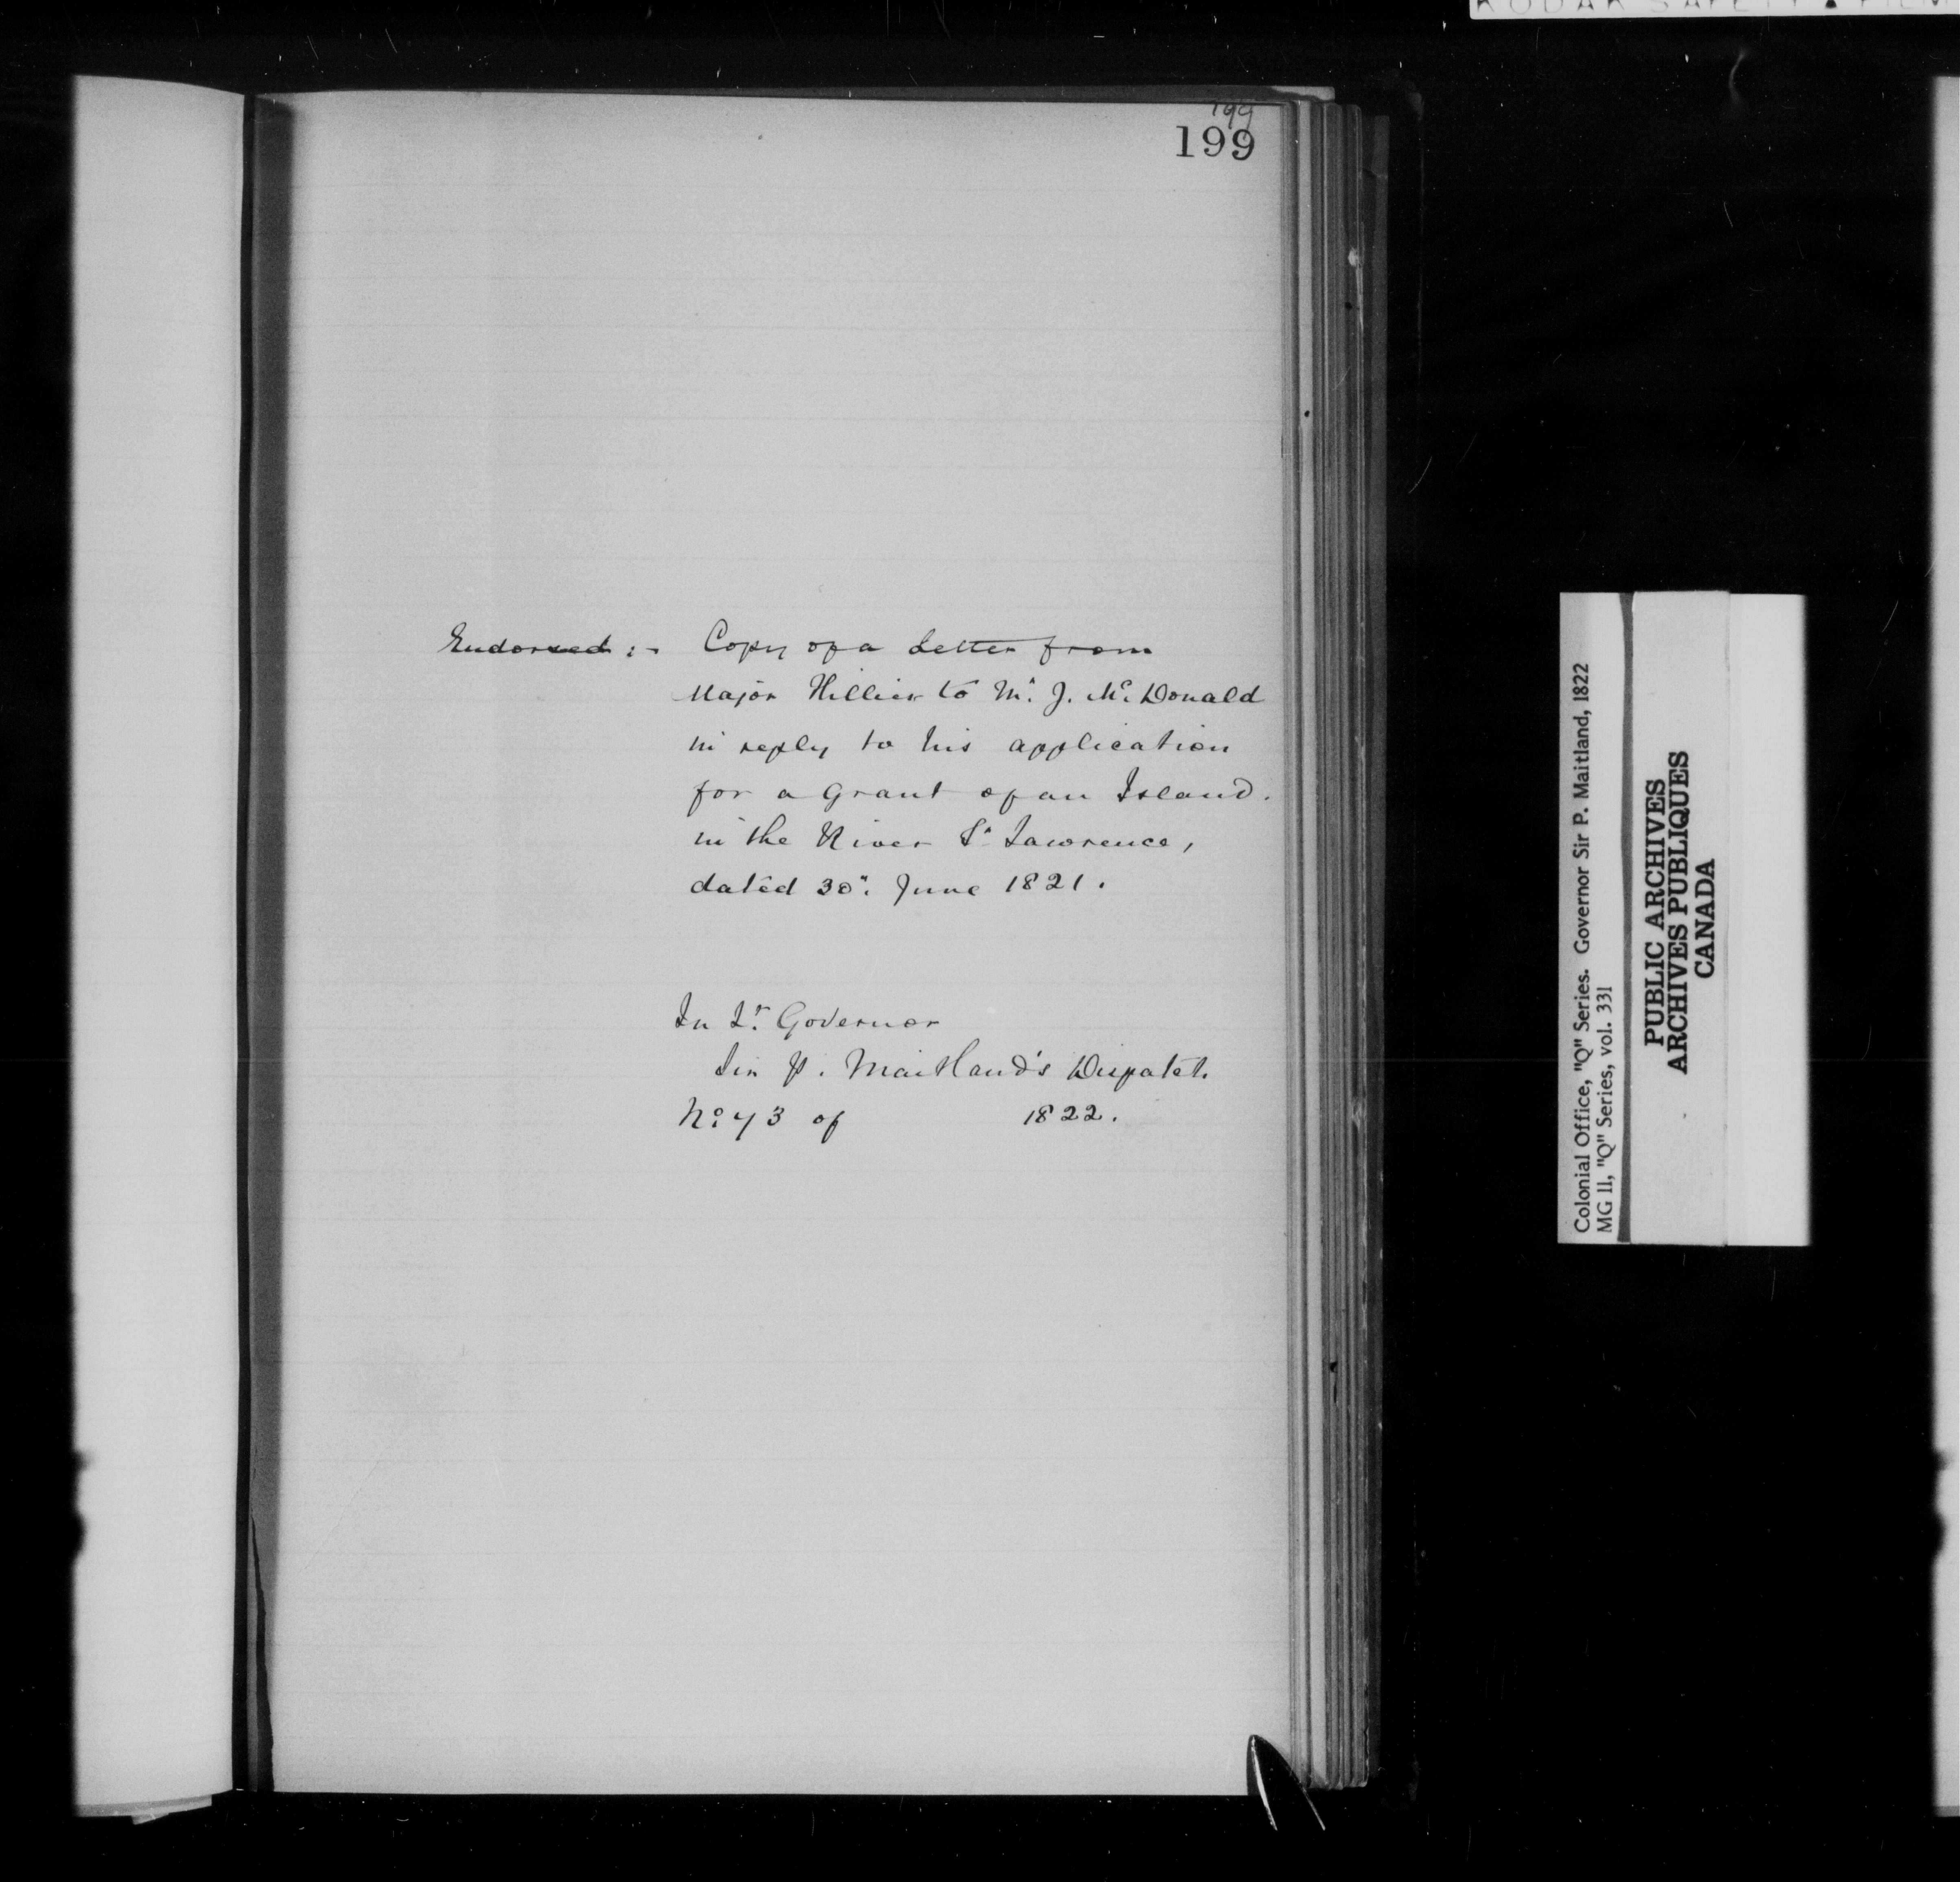 KODAK SAFETY ▲ FILM
199
199
Endorsed :- Copy of a Letter from
Major Hillier to Mr. J. McDonald
in reply to his application
for a Grant of an Island.
in the River St. Lawrence,
dated 30": June 1821.
In Lt. Governor
Sir P. Maitland's Dispatch
No: 43 of 1822.
Colonial Office, "Q" Series. Governor Sir P. Maitland, 1822
MG 11, "Q" Series, vol. 331
PUBLIC ARCHIVES
ARCHIVES PUBLIQUES
CANADA